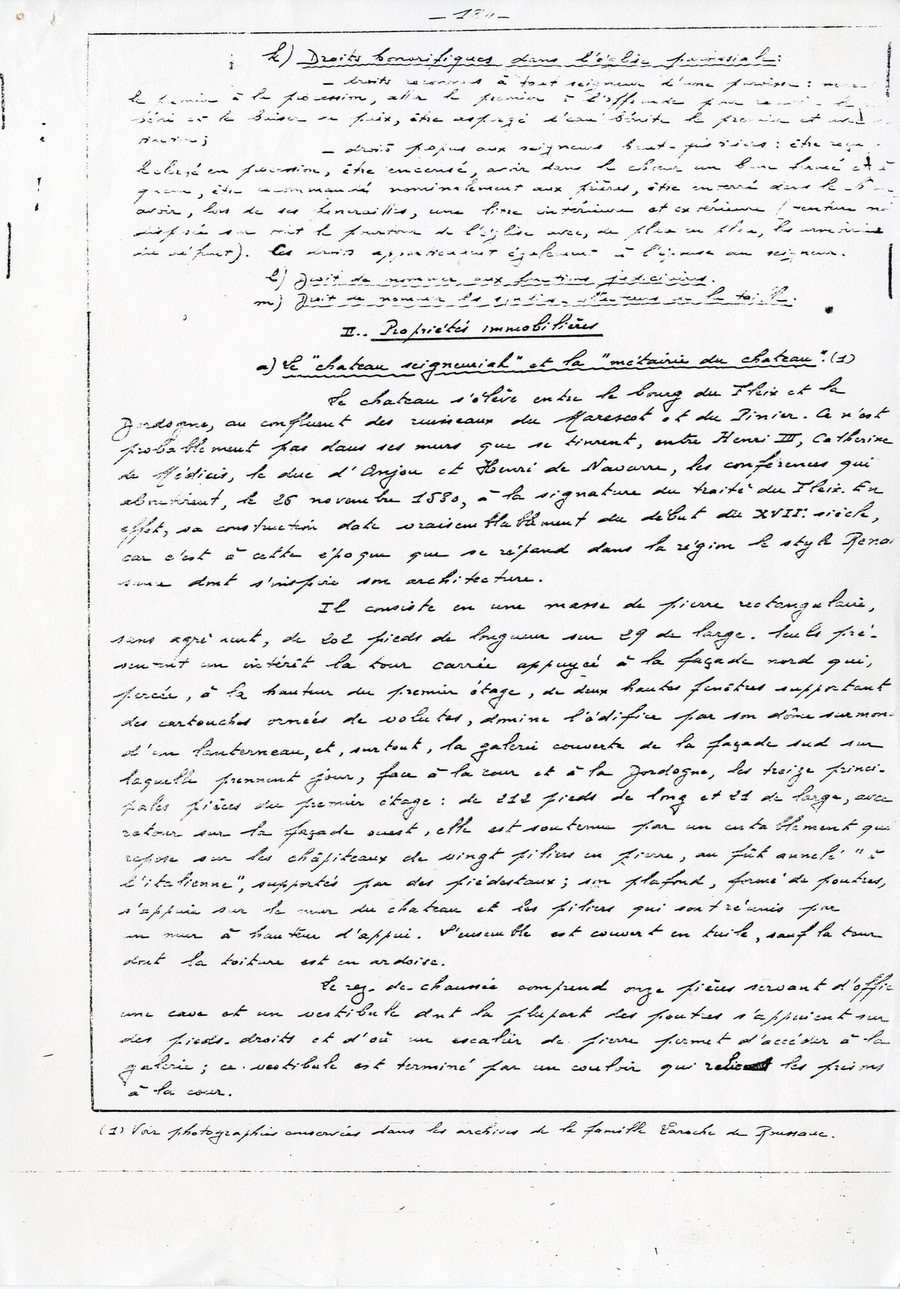 k) Droits honorifiques dans l'église paroissiale:
- droits reconnus à tout seigneur d'une paroisse :
le premier à la procession, aller le premier à l'offrande pour
et le baiser de paix, être aspergé d'eau bénite le premier et
- droits propres aux seigneurs haut-justiciers : être reçu
le clergé en procession, être encensé, avoir dans le choeur un banc fermé et à
queue, être recommandé nominalement aux prières, être enterré dans le
avoir, lors de ses funérailles, une litre intérieure et extérieure (tenture
disposée sur tout le pourtour de l'église avec, de place en place, les armoiries
du défunt). Ces droits appartiennent également à l'épouse du seigneur.
l) Droit de nommer aux fonctions judiciaires.
m) Droit de nommer les syndics-collecteurs de la taille.
II.. Propriétés immobilières
a) Le "chateau seigneurial" et la "métairie du chateau".(1)
Le chateau s'élève entre le bourg du Fleix et la
Dordogne, au confluent des ruisseaux du Marescot et du Pinier. Ce n'est
probablement pas dans ses murs que se tinrent, entre Henri III, Catherine
de Médicis, le duc d'Anjou et Henri de Navarre, les conférences qui
aboutirent, le 26 novembre 1580, à la signature du traité du Fleix. En
effet, sa construction date vraisemblablement du début du XVII° siècle,
car c'est à cette époque que se répand dans la région le style Renais
sance dont s'inspire son architecture.
Il consiste en une masse de pierre rectangulaire,
sans agrément, de 202 pieds de longueur sur 29 de large. Seuls pré-
sentent un intérêt la tour carrée appuyée à la façade nord qui,
percée, à la hauteur du premier étage, de deux hautes fenêtres supportant
des cartouches ornées de volutes, domine l'édifice par son dôme surmon
d'un lanterneau, et, surtout, la galerie couverte de la façade sud sur
laquelle prennent jour, face à la cour et à la Dordogne, les treize princi-
pales pièces du premier étage : de 212 pieds de long et 21 de large, avec
retour sur la façade ouest, elle est soutenue par un entablement qui
repose sur les châpiteaux de vingt piliers en pierre, au fût annelé "à
l'italienne", supportés par des piédestaux ; son plafond, formé de poutres,
s'appuie sur le mur du chateau et les piliers qui sont réunis par
un mur à hauteur d'appui. L'ensemble est couvert en tuile, sauf la tour
dont la toiture est en ardoise.
Le rez-de-chaussée comprend onze pièces servant d'offic
une cave et un vestibule dont la plupart des poutres s'appuient sur
des pieds-droits et d'où un escalier de pierre permet d'accéder à la
galerie ; ce vestibule est terminé par un couloir qui relie les
à la cour.
(1) Voir photographies conservées dans les archives de la famille Laroche de